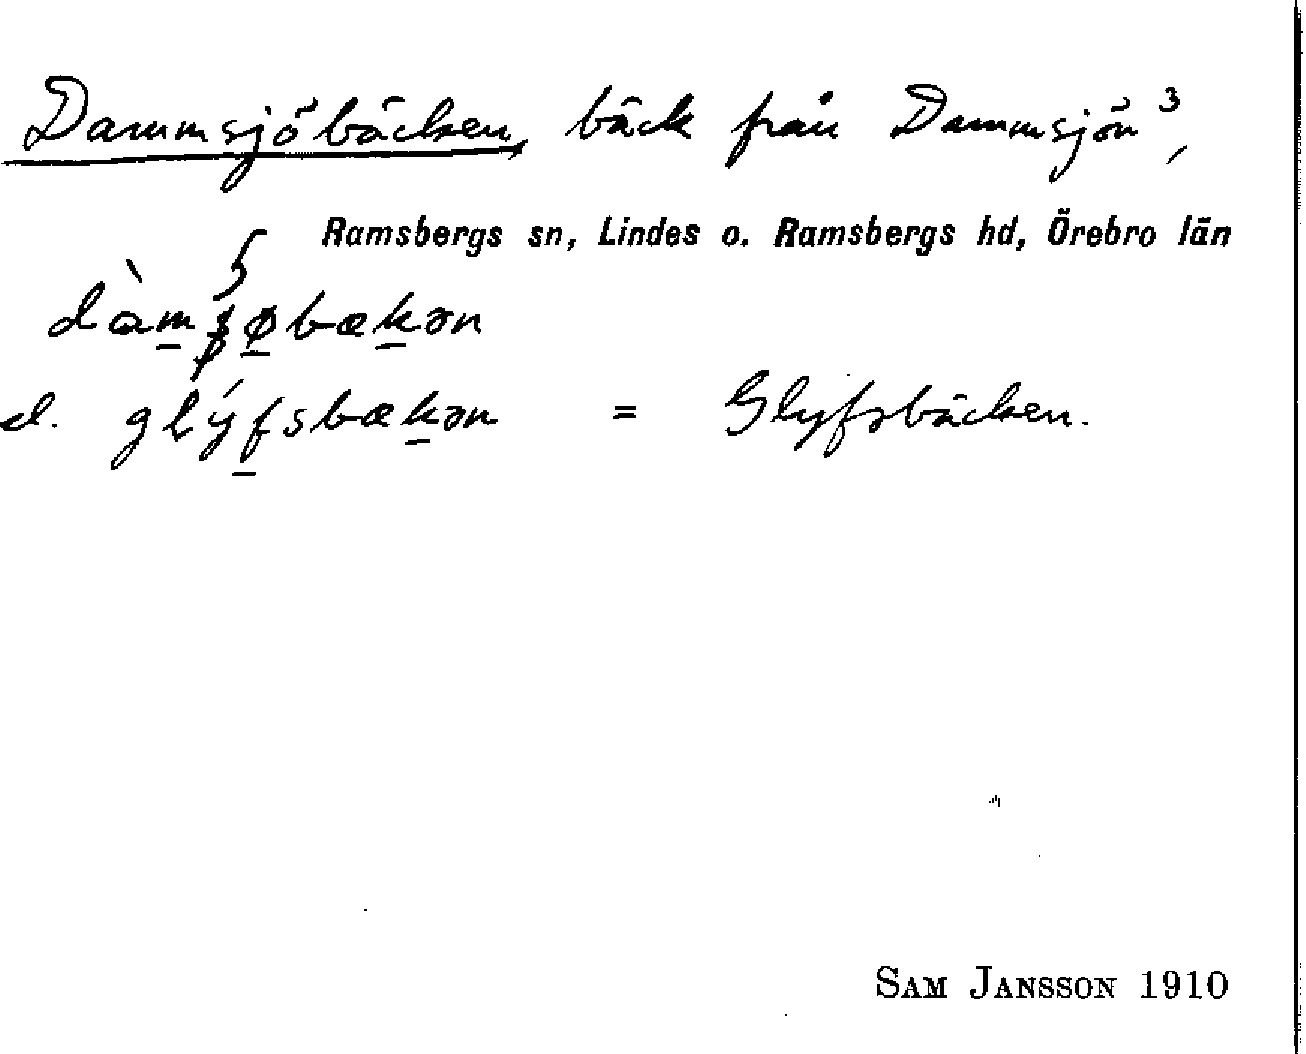 Dammsjöbäcken, bäck från Dammsjön³,
Ramsbergs sn, Lindes o. Ramsbergs hd, Örebro län
dàmʂøbækən
el. glýfsbækən = Glyfsbäcken.
SAM JANSSON 1910